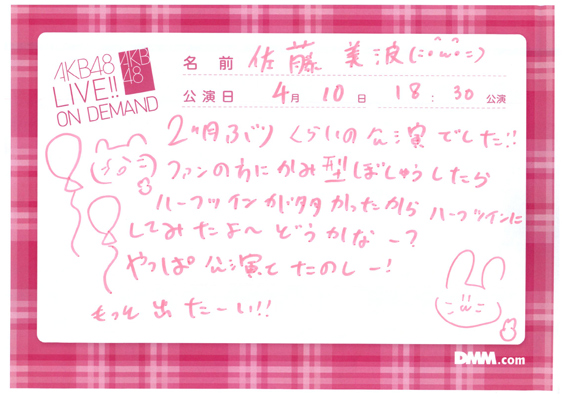 AKB48
LIVE!!
ON DEMAND
AKB
48
名前 佐藤 美波(ﾆ°ω°ﾆ)
公演日 4月 10日 18:30公演
2ヶ月ぶり くらいの公演でした!!
ファンのわにかみ型ぼしゅうしたら
ハーフツインが多かったから ハーフツインに
してみたよ〜 どうかなー?
やっぱ公演てたのしー!
もっと出たーい!!
DMM.com